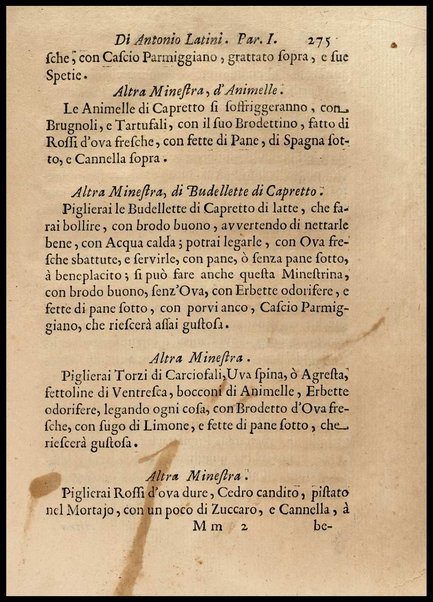 Di Antonio Latini. Par. I. 275
ſche, con Caſcio Parmiggiano, grattato ſopra, e ſue
Spetie.
Altra Mineſtra, d'Animelle.
Le Animelle di Capretto ſi ſoffriggeranno, con
Brugnoli, e Tartufali, con il ſuo Brodettino, fatto di
Roſſi d'ova freſche, con fette di Pane, di Spagna ſot-
to, e Cannella ſopra.
Altra Mineſtra, di Budellette di Capretto.
Piglierai le Budellette di Capretto di latte, che fa-
rai bollire, con brodo buono, avvertendo di nettarle
bene, con Acqua calda; potrai legarle, con Ova fre-
ſche sbattute, e ſervirle, con pane, ò ſenza pane ſotto,
à beneplacito; ſi può fare anche queſta Mineſtrina,
con brodo buono, ſenz'Ova, con Erbette odorifere, e
fette di pane ſotto, con porvi anco, Caſcio Parmig-
giano, che rieſcerà aſſai guſtoſa.
Altra Mineſtra.
Piglierai Torzi di Carciofali, Uva ſpina, ò Agreſta,
fettoline di Ventreſca, bocconi di Animelle, Erbette
odorifere, legando ogni coſa, con Brodetto d'Ova fre-
ſche, con ſugo di Limone, e fette di pane ſotto, che
rieſcerà guſtoſa.
Altra Mineſtra.
Piglierai Roſſi d'ova dure, Cedro candito, piſtato
nel Mortajo, con un poco di Zuccaro, e Cannella, à
M m 2 be-